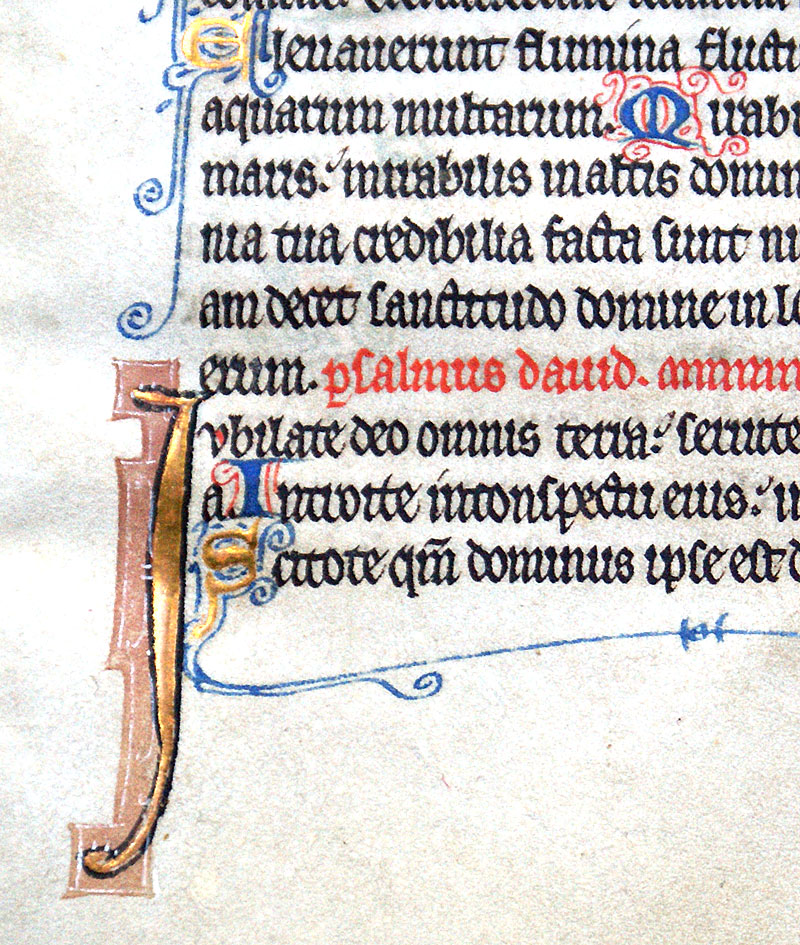 Eleuauerunt flumina fluctu
aquarum multarum. Mirabi
maris: mirabilis in altis domin
nia tua credibilia facta sunt ni
am decet sanctitudo domine in lo
erum. psalmus dauid.
Jvbilate deo omnis terra: seruite
a. Introite in conspectu eius: in
Scitote qm̅ dominus ipse est d